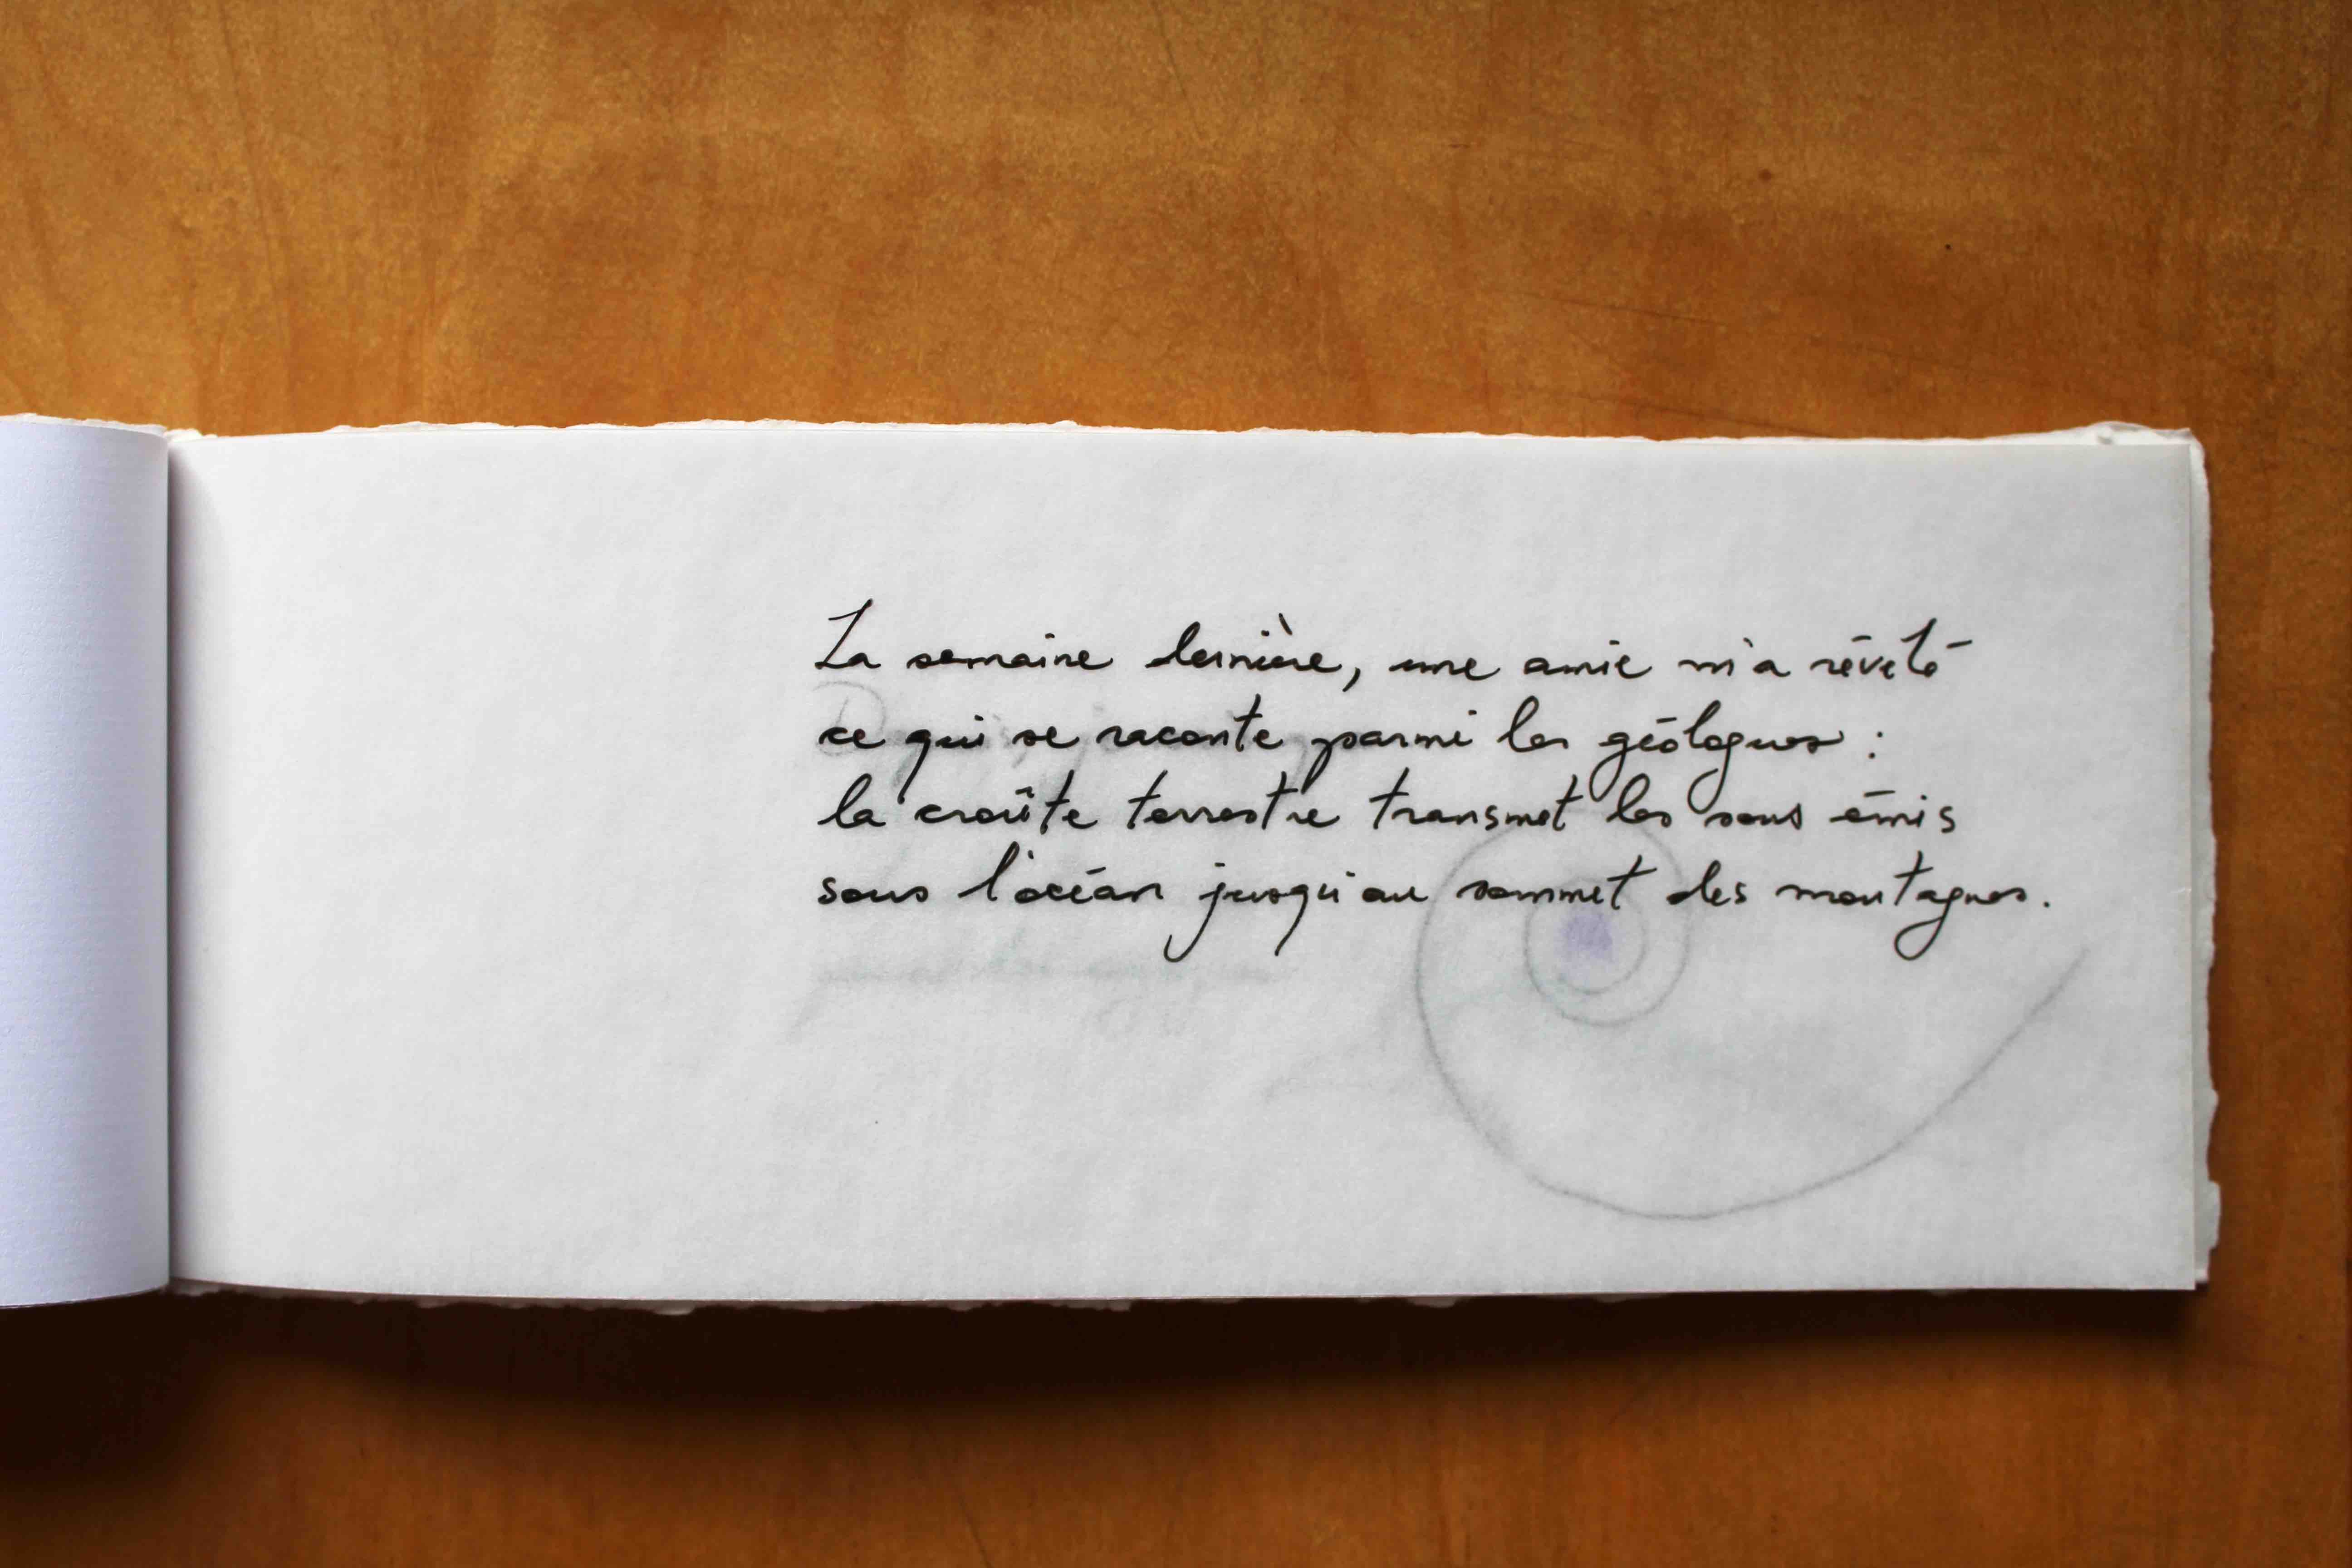 La semaine dernière, une amie m'a révélé
ce qui se raconte parmi les géologues :
la croûte terrestre transmet les sons émis
sous l'océan jusqu'au sommet des montagnes.